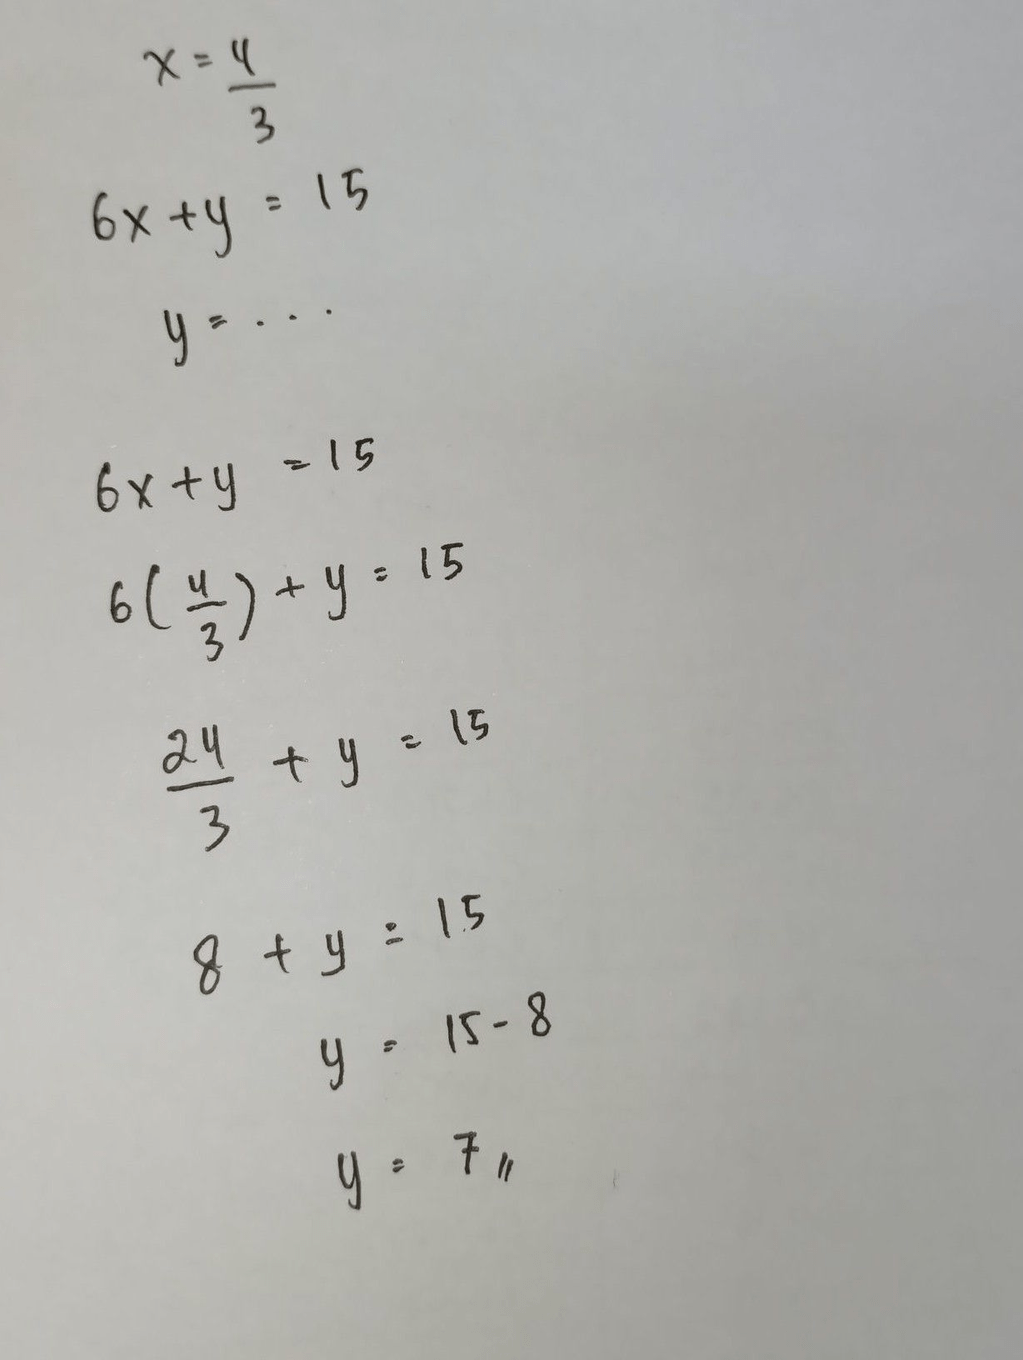 x = 4/3
6x + y = 15
y = ...
6x + y = 15
6(4/3) + y = 15
24/3 + y = 15
8 + y = 15
y = 15 - 8
y = 7 //